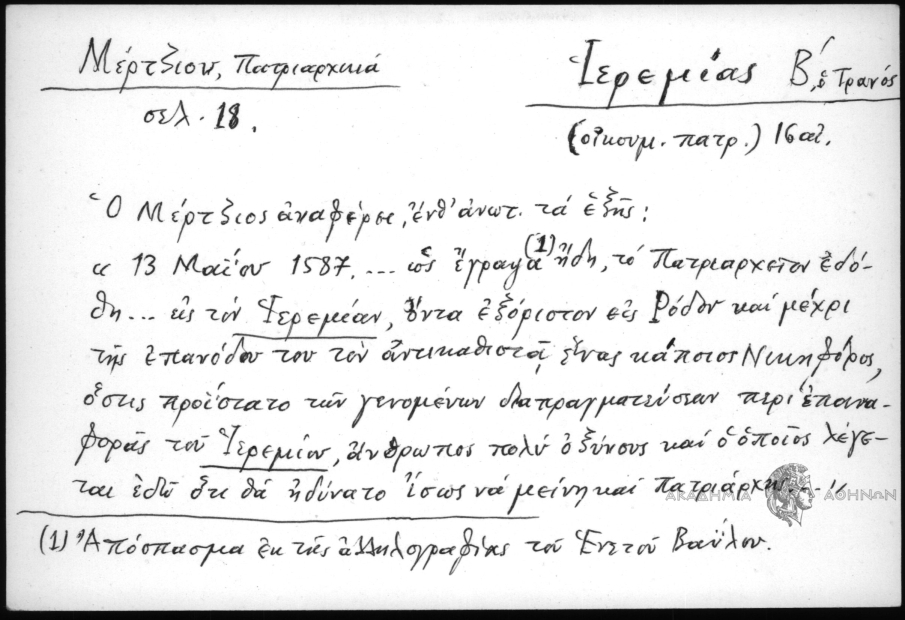 Μέρτζιου, Πατριαρχικά
σελ. 18.
Ἱερεμίας Β΄, ὁ Τρανός
(οἰκουμ. πατρ.) 16 αἰ.
Ὁ Μέρτζιος ἀναφέρει, ἔνθ' ἀνωτ. τά ἑξῆς:
« 13 Μαΐου 1587. ... ὡς ἔγραψα (1) ἤδη, τό Πατριαρχεῖον ἐδό-
θη... εἰς τόν Ἱερεμίαν, ὄντα ἐξόριστον εἰς Ρόδον καί μέχρι
τῆς ἐπανόδου του τόν ἀντικαθιστᾷ ἕνας κάποιος Νικηφόρος,
ὅστις προΐστατο τῶν γενομένων διαπραγματεύσεων περί ἐπανα-
φορᾶς τοῦ Ἱερεμίου, ἄνθρωπος πολύ ὀξύνους καί ὁ ὁποῖος λέγε-
ται ἐδῶ ὅτι θά ἠδύνατο ἴσως νά μείνῃ καί πατριάρχης...»
ΑΚΑΔΗΜΙΑ ΑΘΗΝΩΝ
(1) Ἀπόσπασμα ἐκ τῆς ἀλληλογραφίας τοῦ Ἑνετοῦ Βαΐλου.